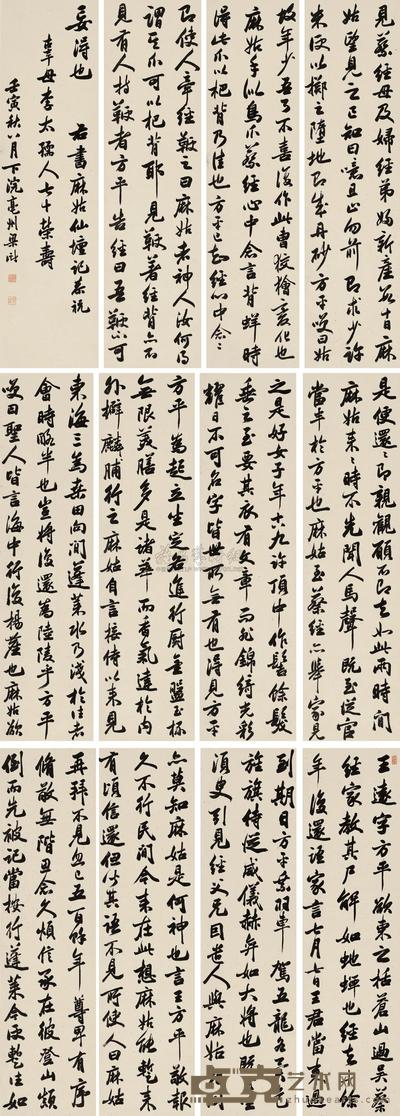 王遠字方平欲東之括蒼山過吳蔡
經家教其尸解如蛇蟬也經去十
年後還語家言七月七日王君當來
到期日方平乘羽車駕五龍各異
旌旗侍從威儀赫弈如大將也既至
須臾引見經父兄因遣人與麻姑相
亦莫知麻姑是何神也言王方平敬報
久不行民間今來在此想麻姑能蹔來
有頃信還但聞其語不見所使人曰麻姑
再拜不見忽已五百餘年尊卑有序
脩敬無階思念久煩信承在彼登山顛
倒而先被記當按行蓬萊今便蹔往如
是便還還即親覲願不即去如此兩時間
麻姑來時不先聞人馬聲既至從官
當半於方平也麻姑至蔡經亦舉家見
之是好女子年十八九許頂中作髻餘髮
垂之至要其衣有文章而非錦綺光彩
耀日不可名字皆世所無有也得見方平
方平為起立坐定各進行廚金盤玉杯
無限美膳多是諸華而香氣達於內
外擗麟脯行之麻姑自言接侍以來見
東海三為桑田向間蓬萊水乃淺於往者
會時略半也豈將復還為陸陵乎方平
笑曰聖人皆言海中行復揚塵也麻姑欲
見蔡經母及婦經弟婦新產數十日麻
姑望見之已知曰噫且止勿前即求少許
米便以擲之墮地即成丹砂方平笑曰姑
故年少吾了不喜復作此曹狡獪變化也
麻姑手似鳥爪蔡經心中念言背蟬時
得此爪以杷背乃佳也方平已知經心中念
即使人牽經鞭之曰麻姑者神人汝何得
謂其爪可以杷背耶見鞭著經背亦不
見有人持鞭者方平告經曰吾鞭不可
妄得也 右書麻姑仙壇記恭祝
母李太孺人七十榮壽
壬寅秋八月下浣亳州梁巘